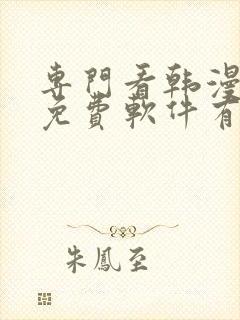 專門看韩漫
免費軟件有
朱鳳至